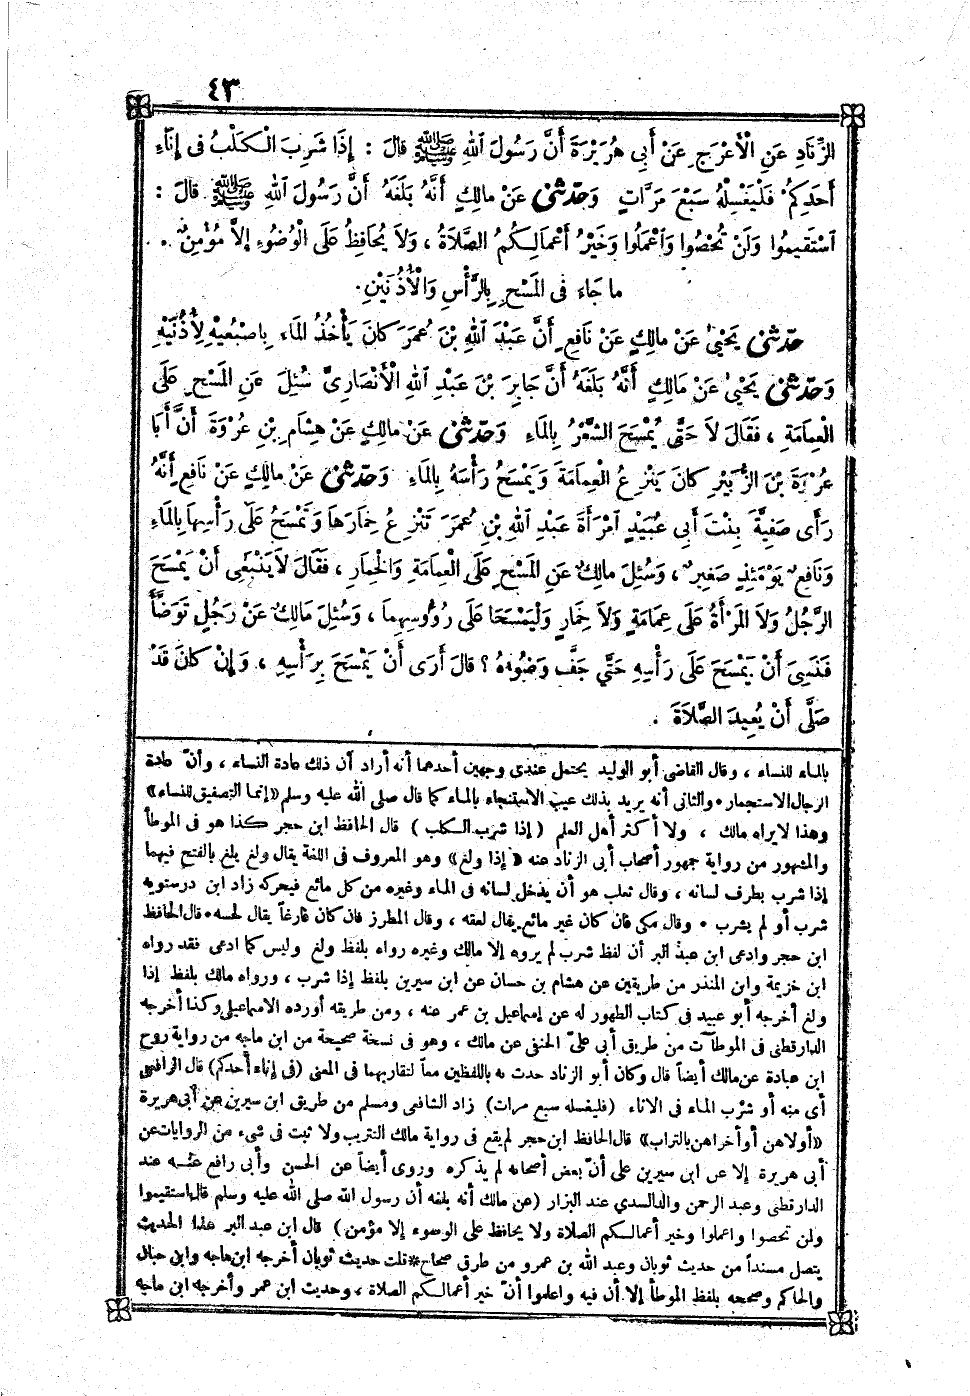 ٤٣
الزِّنَادِ عَنِ الْأَعْرَجِ عَنْ أَبِي هُرَيْرَةَ أَنَّ رَسُولَ اللهِ ﷺ قَالَ : إِذَا شَرِبَ الْكَلْبُ فى إِنَاءِ
أَحَدِكُمْ فَلْيَغْسِلْهُ سَبْعَ مَرَّاتٍ وَحَدَّثَنِي عَنْ مالِكٍ أَنَّهُ بَلَغَهُ أَنَّ رَسُولَ اللهِ ﷺ قَالَ :
اسْتَقِيمُوا وَلَنْ تُحْصُوا وَاعْمَلُوا وَخَيْرُ أَعْمَالِكُمُ الصَّلَاةُ ، وَلاَ يُحَافِظُ عَلَى الْوُضُوءِ إِلاَّ مُؤْمِنٌ .
ما جَاءَ فى المَسْحِ بِالرَّأْسِ وَالْأُذُنَيْنِ .
حَدَّثَنِي يَحْيَى عَنْ مالِكٍ عَنْ نَافِعٍ أَنَّ عَبْدَ اللهِ بْنَ عُمَرَ كانَ يَأْخُذُ المَاءَ بِاصْبُعَيْهِ لِأُذُنَيْهِ
وَحَدَّثَنِي يَحْيَى عَنْ مَالِكٍ أَنَّهُ بَلَغَهُ أَنَّ جَابِرَ بْنَ عَبْدِ اللهِ الْأَنْصَارِىَّ سُئِلَ عَنِ المَسْحِ عَلَى
الْعِمَامَةِ ، فَقَالَ لاَ حَتَّى يُمْسَحَ الشَّعْرُ بِالمَاءِ وَحَدَّثَنِي عَنْ مالِكٍ عَنْ هِشَامِ بْنِ عُرْوَةَ أَنَّ أَبَا
عُرْوَةَ بْنَ الزُّبَيْرِ كانَ يَنْزِعُ الْعِمَامَةَ وَيَمْسَحُ رَأْسَهُ بِالمَاءِ وَحَدَّثَنِي عَنْ مالِكٍ عَنْ نَافِعٍ أَنَّهُ
رَأَى صَفِيَّةَ بِنْتَ أَبِي عُبَيْدٍ امْرَأَةَ عَبْدِ اللهِ بْنِ عُمَرَ تَنْزِعُ خِمَارَهَا وَتَمْسَحُ عَلَى رَأْسِهَا بِالمَاءِ
وَنَافِعٌ يَوْمَئِذٍ صَغِيرٌ ، وَسُئِلَ مالِكٌ عَنِ المَسْحِ عَلَى الْعِمَامَةِ وَالْخِمَارِ ، فَقَالَ لاَ يَنْبَغِى أَنْ يَمْسَحَ
الرَّجُلُ وَلاَ المَرْأَةُ عَلَى عِمَامَةٍ وَلاَ خِمَارٍ وَلْيَمْسَحَا عَلَى رُؤُوسِهِمَا ، وَسُئِلَ مَالِكٌ عَنْ رَجُلٍ تَوَضَّأَ
فَنَسِىَ أَنْ يَمْسَحَ عَلَى رَأْسِهِ حَتَّى جَفَّ وَضُوءُهُ ؟ قالَ أَرَى أَنْ يَمْسَحَ بِرَأْسِهِ ، وَإِنْ كانَ قَدْ
صَلَّى أَنْ يُعِيدَ الصَّلاَةَ .
بالماء للنساء ، وقال القاضى أبو الوليد يحتمل عندى وجهين أحدهما أنه أراد أن ذلك عادة النساء ، وأنّ عادة
الرجال الاستجمار * والثانى أنه يريد بذلك عيب الاستنجاء بالماء كما قال صلى الله عليه وسلم «إنما التصفيق للنساء»
وهذا لايراه مالك ، ولا أكثر أهل العلم (إذا شرب الكلب) قال الحافظ ابن حجر كذا هو فى الموطأ
والمشهور من رواية جمهور أصحاب أبى الزناد عنه «إذا ولغ» وهو المعروف فى اللغة يقال ولغ يلغ بالفتح فيهما
إذا شرب بطرف لسانه ، وقال ثعلب هو أن يدخل لسانه فى الماء وغيره من كل مائع فيحركه زاد ابن درستويه
شرب أو لم يشرب * وقال مكى فان كان غير مائع يقال لعقه ، وقال المطرز فان كان فارغاً يقال لحسه * قال الحافظ
ابن حجر وادعى ابن عبد البر أن لفظ شرب لم يروه إلا مالك وغيره رواه بلفظ ولغ وليس كما ادعى فقد رواه
ابن خزيمة وابن المنذر من طريقين عن هشام بن حسان عن ابن سيرين بلفظ إذا شرب ، ورواه مالك بلفظ إذا
ولغ أخرجه أبو عبيد فى كتاب الطهور له عن إسماعيل بن عمر عنه ، ومن طريقه أورده الاسماعيلى وكذا أخرجه
الدارقطنى فى الموطآت من طريق أبى علىّ الحنفى عن مالك ، وهو فى نسخة صحيحة من ابن ماجه من رواية روح
ابن عبادة عن مالك أيضاً قال وكان أبو الزناد حدث به باللفظين معاً لتقاربهما فى المعنى (فى إناء أحدكم) قال الرافعى
أى منه أو شرب الماء فى الاناء (فليغسله سبع مرات) زاد الشافعى ومسلم من طريق ابن سيرين عن أبى هريرة
«أولاهن أو أخراهن بالتراب» قال الحافظ ابن حجر لم يقع فى رواية مالك التتريب ولا ثبت فى شىء من الروايات عن
أبى هريرة إلا عن ابن سيرين على أنّ بعض أصحابه لم يذكره وروى أيضاً عن الحسن وأبى رافع عنه عند
الدارقطنى وعبد الرحمن والد السدي عند البزار (عن مالك أنه بلغه أن رسول الله صلى الله عليه وسلم قال استقيموا
ولن تحصوا واعملوا وخير أعمالكم الصلاة ولا يحافظ على الوضوء إلا مؤمن) قال ابن عبد البر هذا الحديث
يتصل مسنداً من حديث ثوبان وعبد الله بن عمرو من طرق صحاح * قلت حديث ثوبان أخرجه ابن ماجه وابن حبان
والحاكم وصححه بلفظ الموطأ إلا أن فيه واعلموا أنّ خير أعمالكم الصلاة ، وحديث ابن عمر وأخرجه ابن ماجه